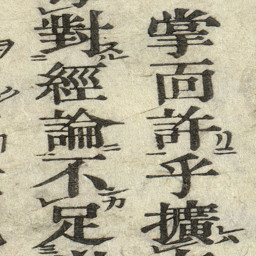 掌面許乎擴
對經論不足